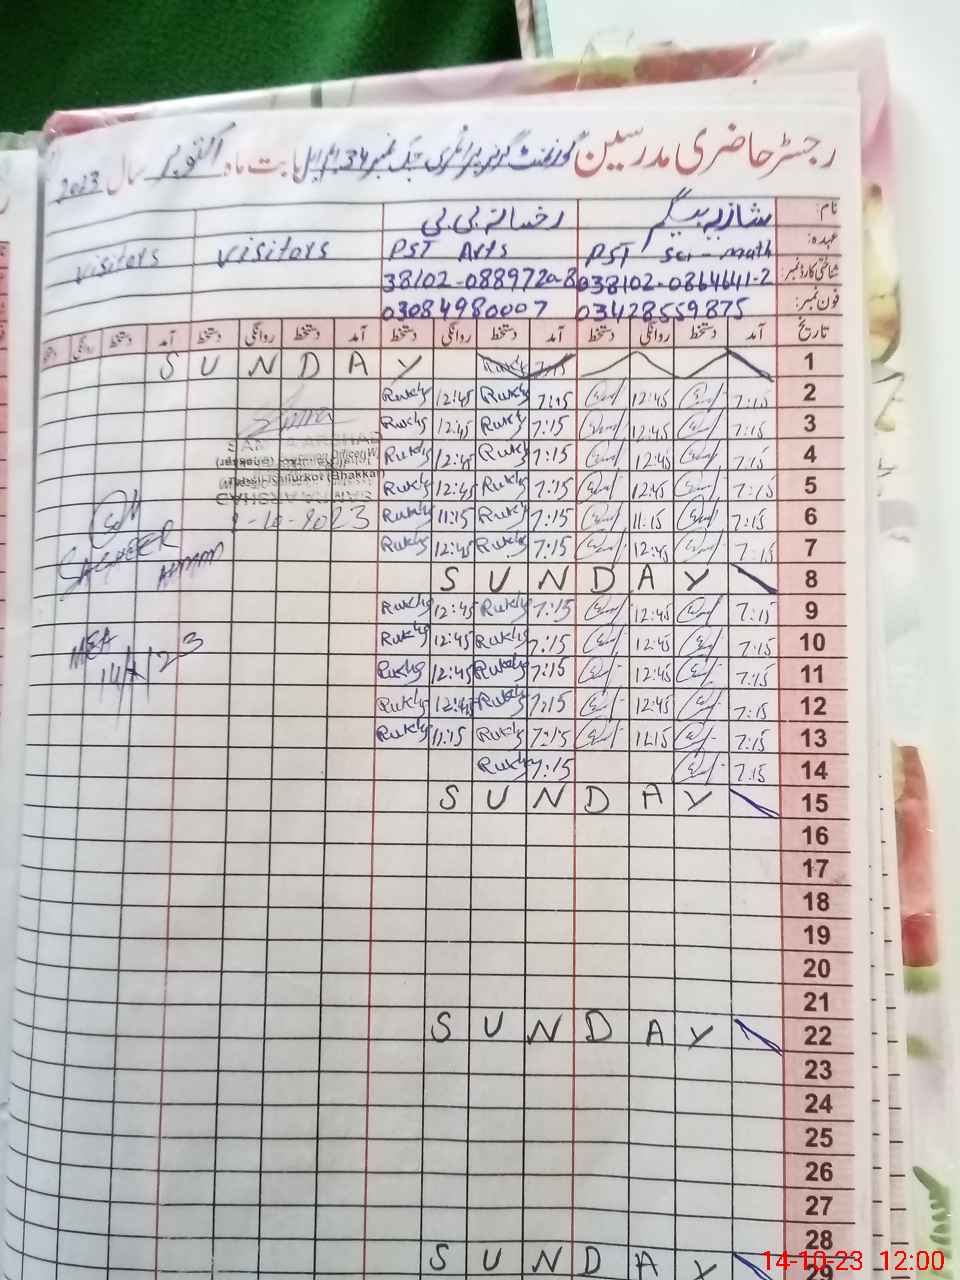 رجسٹر حاضری مدرسین گورنمنٹ گرلز پرائمری چک نمبر 34 بابت ماہ اکتوبر سال 2023
نام: شازیہ بیگم رخسانہ بی بی
عہدہ: PST Sci-math PST Arts visitors visitors
شناختی کارڈ نمبر: 038102-0864641-2 38102-0889720-8
فون نمبر: 03428559875 03084980007
تاریخ آمد دستخط روانگی دستخط آمد دستخط روانگی دستخط آمد دستخط روانگی دستخط آمد دستخط روانگی دستخط
1 SUNDAY 7:15
2 7:15 12:45 7:15 Rukhs 12:45 Rukhs
3 7:15 12:45 7:15 Rukhs 12:45 Rukhs
4 7:15 12:45 7:15 Rukhs 12:45 Rukhs
5 7:15 12:45 7:15 Rukhs 12:45 Rukhs
6 7:15 11:15 7:15 Rukhs 11:15 Rukhs
7 7:15 12:45 7:15 Rukhs 12:45 Rukhs
8 SUNDAY
9 7:15 12:45 7:15 Rukhs 12:45 Rukhs
10 7:15 12:45 7:15 Rukhs 12:45 Rukhs
11 7:15 12:45 7:15 Rukhs 12:45 Rukhs
12 7:15 12:45 7:15 Rukhs 12:45 Rukhs
13 7:15 11:15 7:15 Rukhs 11:15 Rukhs
14 7:15 7:15 Rukhs
15 SUNDAY
16
17
18
19
20
21
22 SUNDAY
23
24
25
26
27
28
29 SUNDAY
-10-2023
SAGHEER
AHMAD
MEA
14/X/23
14-10-23 12:00